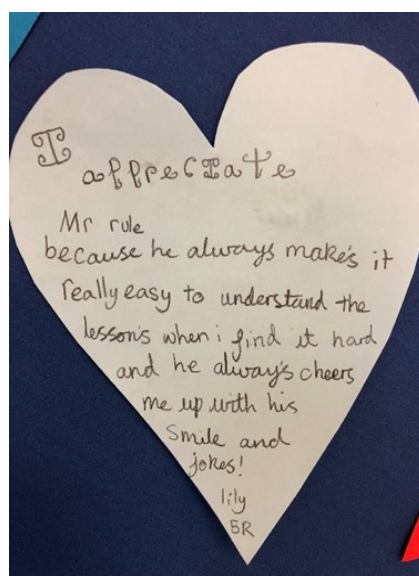 I
appreciate
Mr rule
because he always make's it
really easy to understand the
lesson's when i find it hard
and he alway's cheers
me up with his
smile and
jokes!
lily
5R